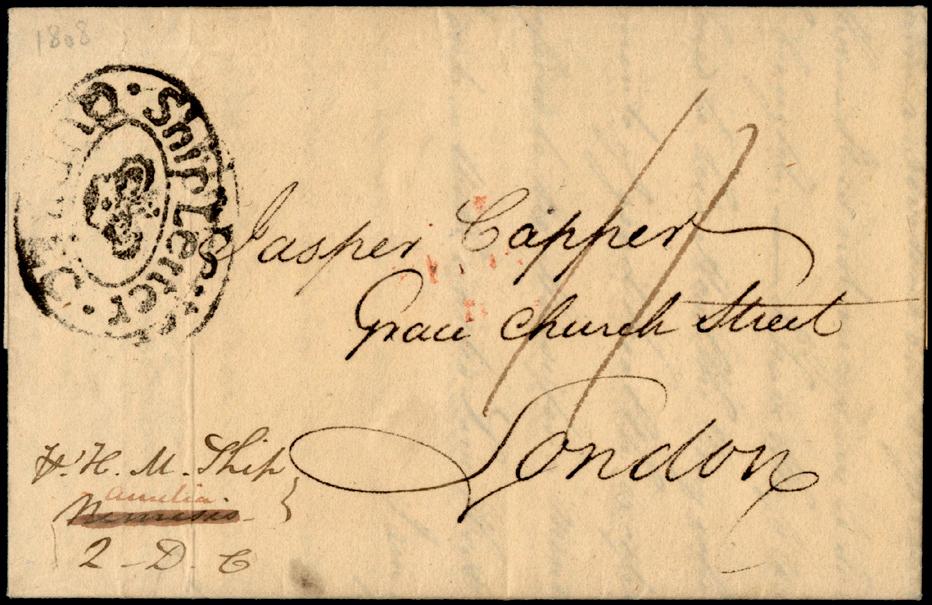 1808
Ship Letter
Jasper Capper
Grace Church Street
London
H. M. Ship
Amelia
Nemesis
2 - D. C